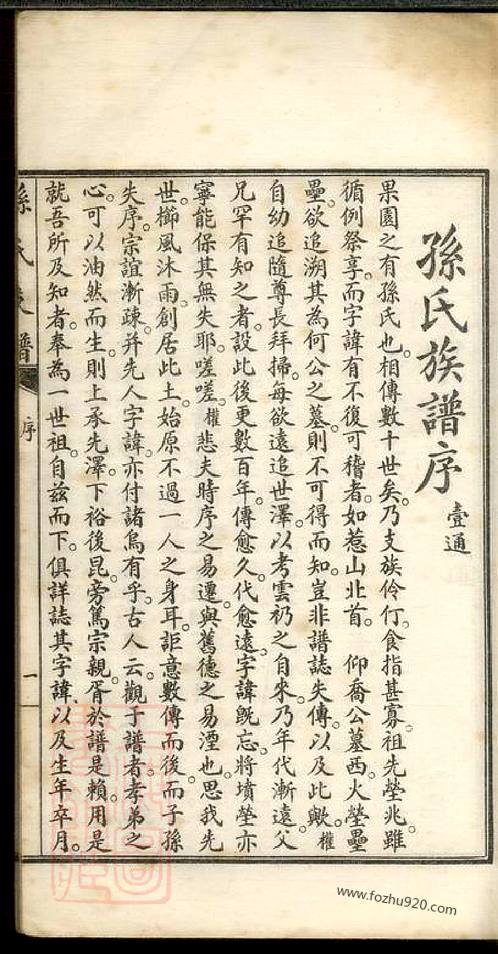 孫氏族譜序 壹通
果園之有孫氏也。相傳數十世矣。乃支族伶仃。食指甚寡。祖先塋兆。雖
循例祭享。而字諱有不復可稽者。如惹山北首。 仰喬公墓西火塋壘
壘。欲追溯其為何公之墓。則不可得而知。豈非譜誌失傳。以及此歟。權
自幼追隨尊長拜掃。每欲遠追世澤。以考雲礽之自來。乃年代漸遠。父
兄罕有知之者。設此後更數百年。傳愈久。代愈遠。字諱旣忘。將墳塋亦
寧能保其無失耶。嗟嗟。權悲夫時序之易遷。與舊德之易湮也。思我先
世。櫛風沐雨。創居此土。始原不過一人之身耳。詎意數傳而後。而子孫
失序。宗誼漸疎。幷先人字諱。亦付諸烏有乎。古人云。觀于譜者。孝弟之
心。可以油然而生。則上承先澤。下裕後昆。旁篤宗親。胥於譜是賴。用是
就吾所及知者。奉為一世祖。自茲而下。俱詳誌其字諱。以及生年卒月。
孫氏族譜
序
一
www.fozhu920.com